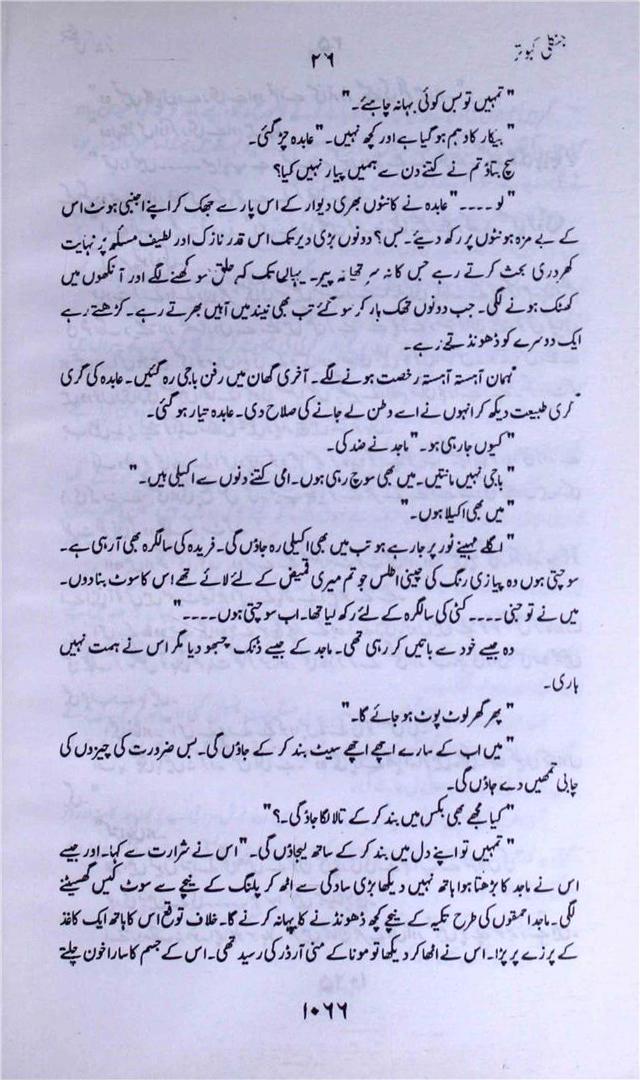 جنگلی کبوتر
۲۶
" تمہیں تو بس کوئی بہانہ چاہئے۔"
" بیکار کا وہم ہو گیا ہے اور کچھ نہیں۔" عابدہ چڑ گئی۔
سچ بتاؤ تم نے کتنے دن سے ہمیں پیار نہیں کیا؟
" لو ۔۔۔۔" عابدہ نے کانٹوں بھری دیوار کے اس پار سے جھک کر اپنے اجنبی ہونٹ اس
کے بے مزہ ہونٹوں پر رکھ دیئے۔ بس؟ دونوں بڑی دیر تک اس قدر نازک اور لطیف مسئلہ پر نہایت
کھردری بحث کرتے رہے جس کا نہ سر تھا نہ پیر۔ یہاں تک کہ حلق سوکھنے لگے اور آنکھوں میں
کھٹک ہونے لگی۔ جب دونوں تھک ہار کر سو گئے تب بھی نیند میں آہیں بھرتے رہے۔ کڑھتے رہے
ایک دوسرے کو ڈھونڈتے رہے۔
مہمان آہستہ آہستہ رخصت ہونے لگے۔ آخری گھان میں رفن باجی رہ گئیں۔ عابدہ کی گری
گری طبیعت دیکھ کر انہوں نے اسے وطن لے جانے کی صلاح دی۔ عابدہ تیار ہو گئی۔
" کیوں جا رہی ہو۔" ماجد نے ضد کی۔
" باجی نہیں مانتیں۔ میں بھی سوچ رہی ہوں۔ امی کتنے دنوں سے اکیلی ہیں۔"
" میں بھی اکیلا ہوں۔"
" اگلے مہینے ٹور پر جا رہے ہو تب میں بھی اکیلی رہ جاؤں گی۔ فریدہ کی سالگرہ بھی آ رہی ہے۔
سوچتی ہوں وہ پیازی رنگ کی چینی اطلس جو تم میری قمیض کے لئے لائے تھے اس کا سوٹ بنا دوں۔
میں نے تو حبی ۔۔۔۔ کنی کی سالگرہ کے لئے رکھ لیا تھا۔ اب سوچتی ہوں ۔۔۔۔"
وہ جیسے خود سے باتیں کر رہی تھی۔ ماجد کے جیسے ڈنک چبھو دیا مگر اس نے ہمت نہیں
ہاری۔
" پھر گھر لوٹ پوٹ ہو جائے گا۔"
" میں اب کے سارے اچھے اچھے سیٹ بند کر کے جاؤں گی۔ بس ضرورت کی چیزوں کی
چابی تمھیں دے جاؤں گی۔
" کیا مجھے بھی بکس میں بند کر کے تالا لگا جاؤ گی۔؟"
" تمہیں تو اپنے دل میں بند کر کے ساتھ لیجاؤں گی۔" اس نے شرارت سے کہا۔ اور جیسے
اس نے ماجد کا بڑھتا ہوا ہاتھ نہیں دیکھا بڑی سادگی سے اٹھ کر پلنگ کے نیچے سے سوٹ کیس گھسیٹنے
لگی۔ ماجد احمقوں کی طرح تکیہ کے نیچے کچھ ڈھونڈنے کا بہانہ کرنے گا۔ خلاف توقع اس کا ہاتھ ایک کاغذ
کے پرزے پر پڑا۔ اس نے اٹھا کر دیکھا تو مونا کے منی آرڈر کی رسید تھی۔ اس کے جسم کا سارا خون چلتے
۱۰۶۶